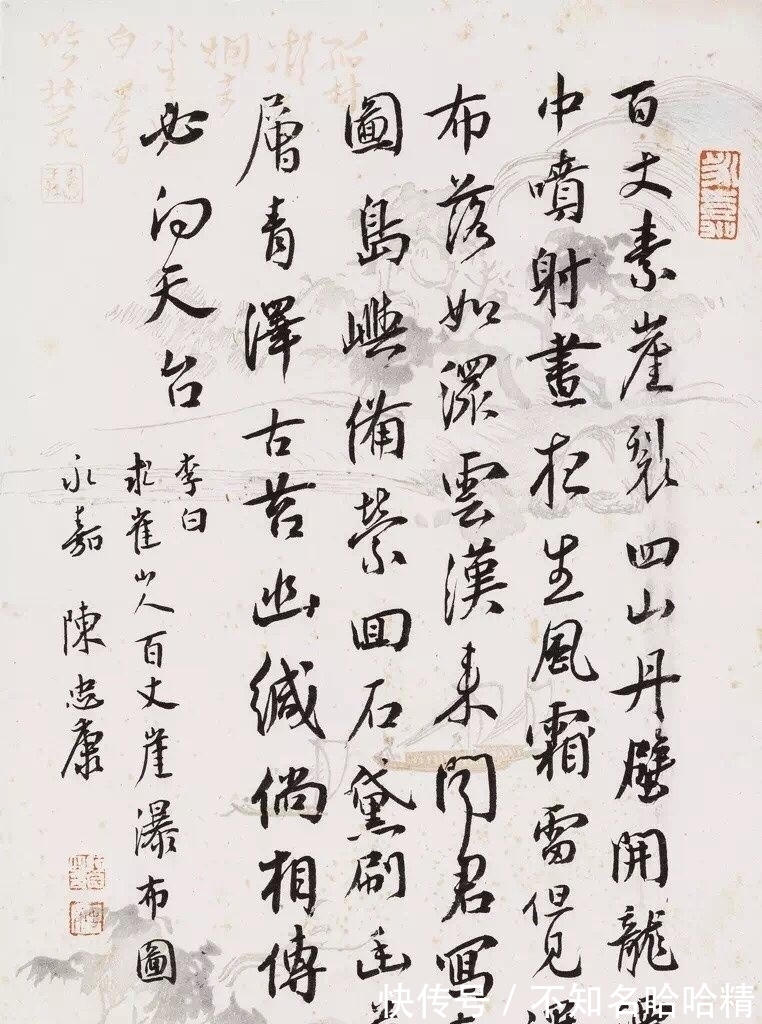 百丈素崖裂四山丹壁開龍
中噴射晝夜生風霜雷但見
布落如潨雲漢來聞君寫
圖島嶼備縈回石黛刷幽
層青澤古苔幽緘倘相傳
必向天台
李白
求崔山人百丈崖瀑布圖
永嘉 陳忠康
快传号 / 不知名哈哈精